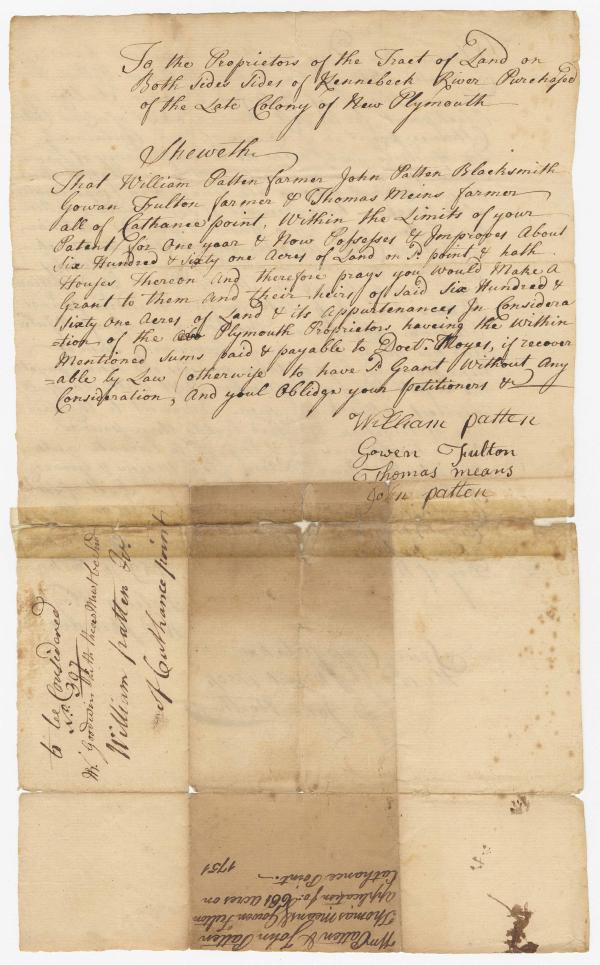 To the Proprietors of the Tract of Land on
Both Sides Sides of Kennebeck River Purchased
of the Late Colony of New Plymouth
Sheweth
That William Patten farmer John Patten Blacksmith
Gowan Fulton farmer & Thomas Meins farmer
all of Cathance point, Within the Limits of your
Patent for One year & Now Possesses & Improves About
Six Hundred & Sixty one Acres of Land on Sd point & hath
Houses Thereon And therefore prays you Would Make A
Grant to them And Their heirs of said Six Hundred &
Sixty One Acres of Land & its Appurtenances In Considera
=tion of the Plymouth Proprietors haveing the Within
Mentioned Sums paid & payable to Doctr. Noyes, if recover
=able by Law (otherwise to have Sd Grant Without Any
Consideration, And youl Oblidge your petitioners &c
William patten
Gowen Fulton
Thomas means
John patten
to be Considered
No. 307
Mr. Goodwin must be
William patten &c
of Cathance point
Wm Patten & John Patten
Thomas means & Gowen Fulton
application for 661 acres on
Cathance Point.
1751